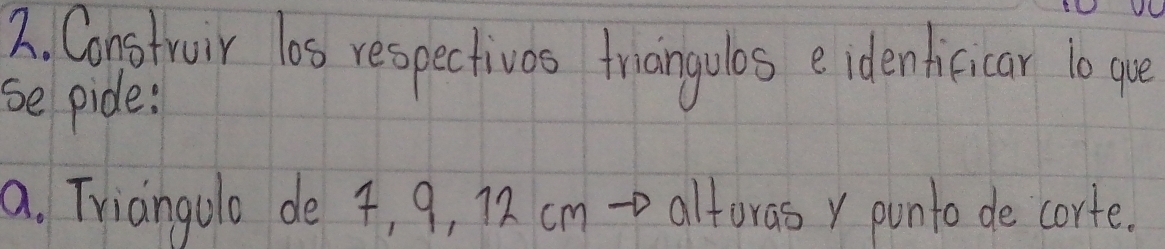 2. Construir los respectivos triángulos e identificar lo que
se pide:
a. Triángulo de 7, 9, 12 cm → alturas y punto de corte.